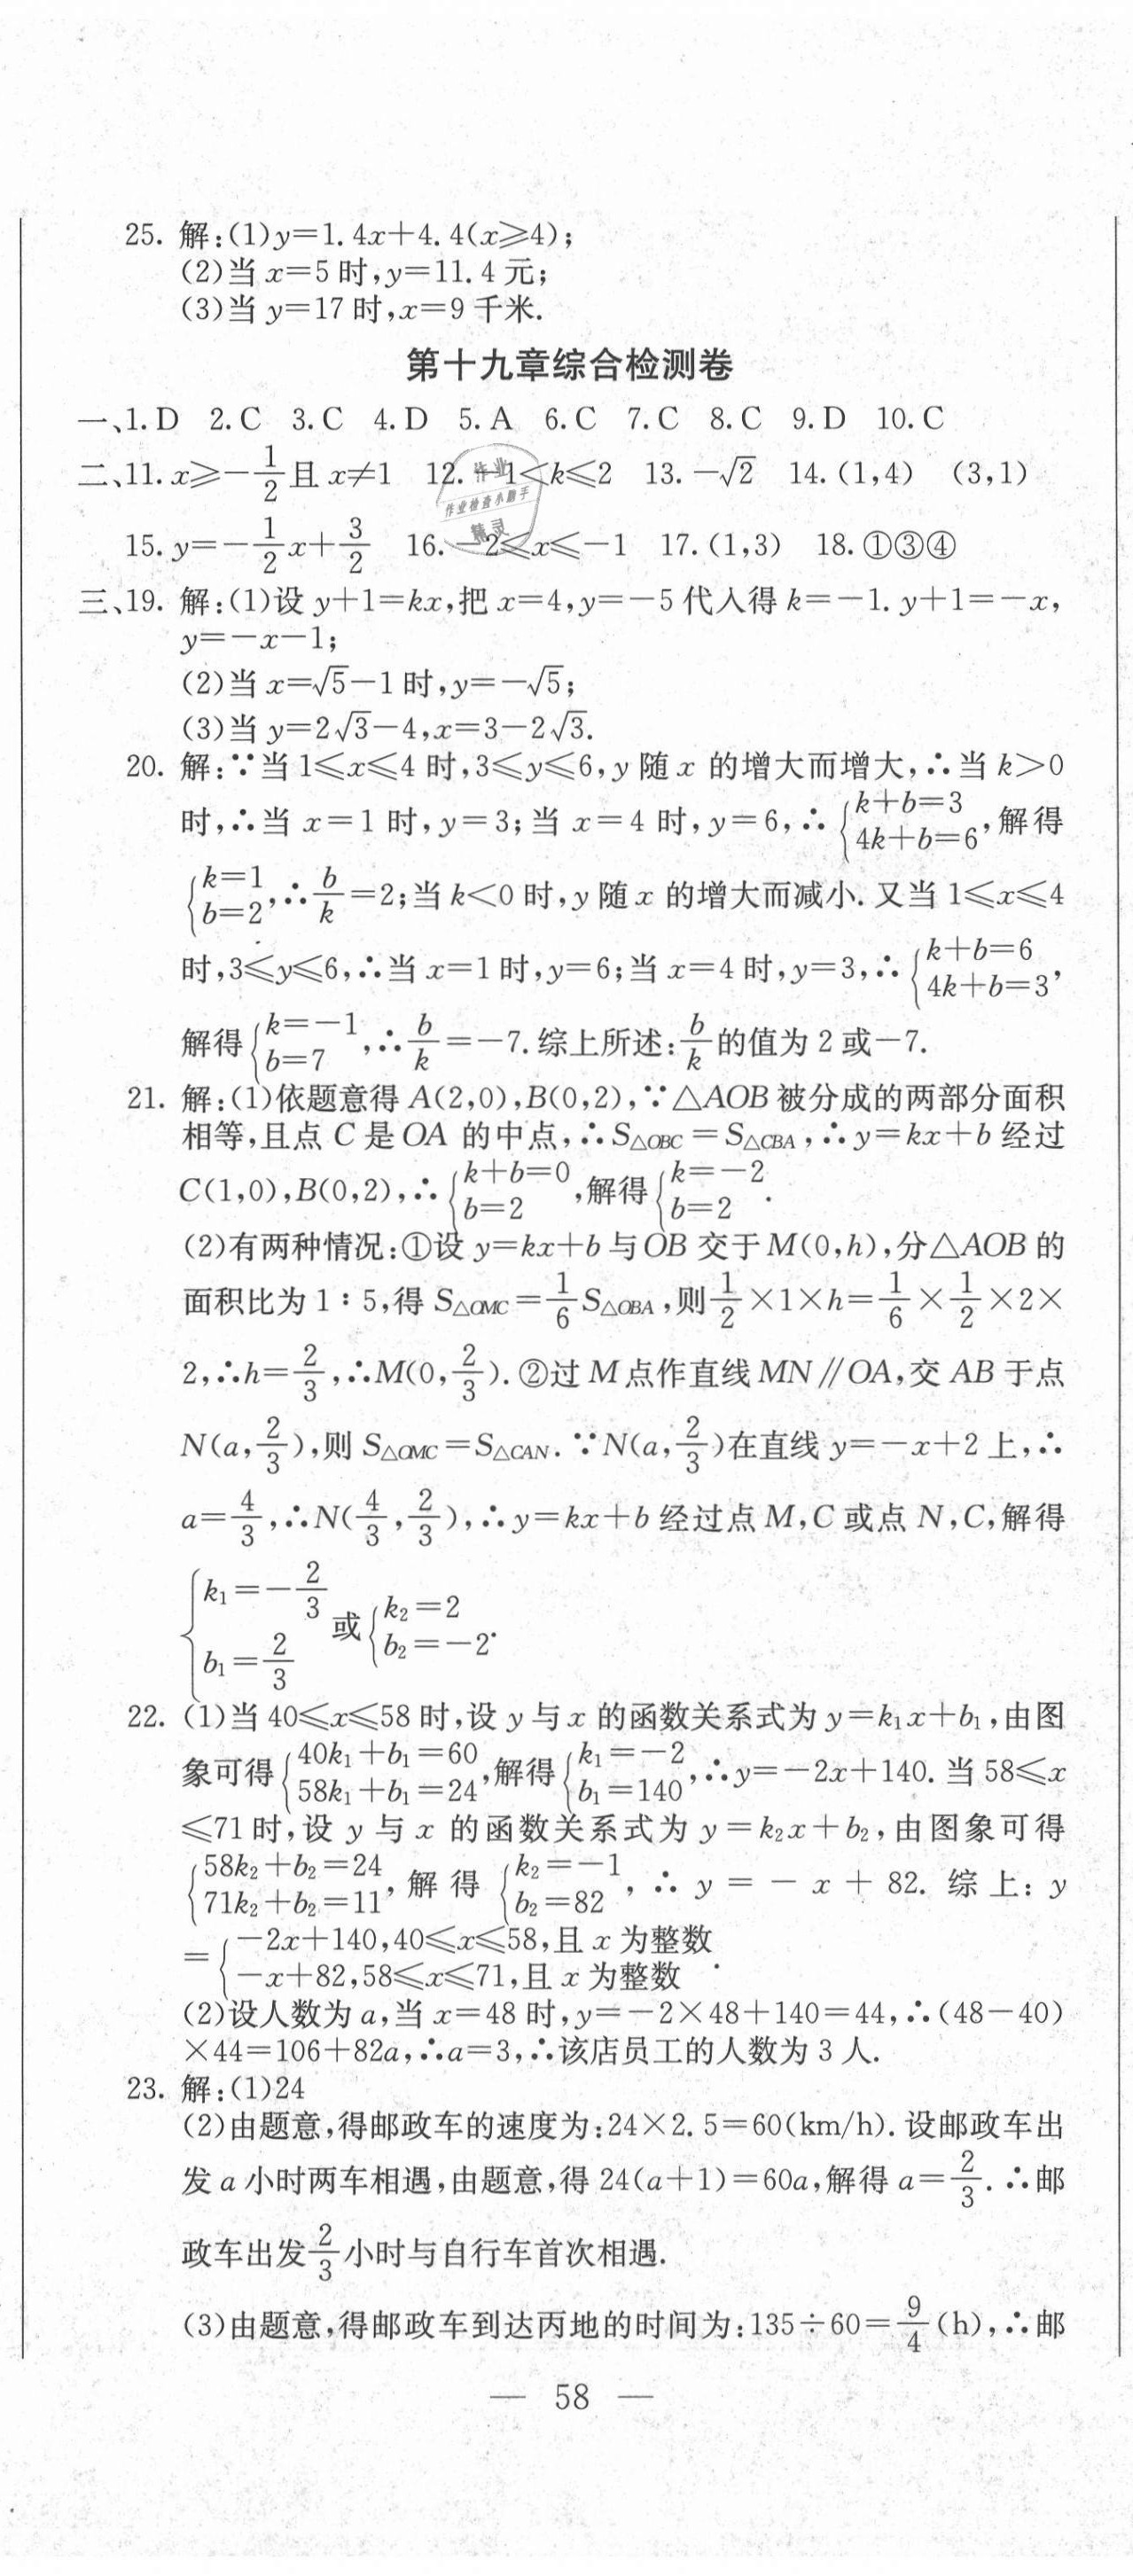 25. 解:(1)y=1.4x+4.4(x≥4);
(2)当 x=5 时,y=11.4 元;
(3)当 y=17 时,x=9 千米.
第十九章综合检测卷
一、1.D 2.C 3.C 4.D 5.A 6.C 7.C 8.C 9.D 10.C
二、11.x≥-1/2且 x≠1 12.-1<k≤2 13.-√2 14.(1,4) (3,1)
15.y=-1/2x+3/2 16.-2≤x≤-1 17.(1,3) 18.①③④
作业
作业检查小助手
精灵
三、19. 解:(1)设 y+1=kx,把 x=4,y=-5 代入得 k=-1. y+1=-x,
y=-x-1;
(2)当 x=√5-1 时,y=-√5;
(3)当 y=2√3-4,x=3-2√3.
20. 解:∵当 1≤x≤4 时,3≤y≤6,y 随 x 的增大而增大,∴当 k>0
时,∴当 x=1 时,y=3;当 x=4 时,y=6,∴{k+b=3 4k+b=6,解得
{k=1 b=2,∴b/k=2;当 k<0 时,y 随 x 的增大而减小. 又当 1≤x≤4
时,3≤y≤6,∴当 x=1 时,y=6;当 x=4 时,y=3,∴{k+b=6 4k+b=3,
解得{k=-1 b=7,∴b/k=-7.综上所述:b/k的值为 2 或-7.
21. 解:(1)依题意得 A(2,0),B(0,2),∵△AOB 被分成的两部分面积
相等,且点 C 是 OA 的中点,∴S△OBC=S△CBA,∴y=kx+b 经过
C(1,0),B(0,2),∴{k+b=0 b=2,解得{k=-2 b=2.
(2)有两种情况:①设 y=kx+b 与 OB 交于 M(0,h),分△AOB 的
面积比为 1:5,得 S△OMC=1/6S△OBA,则1/2×1×h=1/6×1/2×2×
2,∴h=2/3,∴M(0,2/3).②过 M 点作直线 MN∥OA,交 AB 于点
N(a,2/3),则 S△OMC=S△CAN.∵N(a,2/3)在直线 y=-x+2 上,∴
a=4/3,∴N(4/3,2/3),∴y=kx+b 经过点 M,C 或点 N,C,解得
{k₁=-2/3 b₁=2/3 或{k₂=2 b₂=-2.
22. (1)当 40≤x≤58 时,设 y 与 x 的函数关系式为 y=k₁x+b₁,由图
象可得{40k₁+b₁=60 58k₁+b₁=24,解得{k₁=-2 b₁=140,∴y=-2x+140. 当 58≤x
≤71 时,设 y 与 x 的函数关系式为 y=k₂x+b₂,由图象可得
{58k₂+b₂=24 71k₂+b₂=11,解得{k₂=-1 b₂=82,∴y=-x+82. 综上:y
={-2x+140,40≤x≤58,且 x 为整数 -x+82,58≤x≤71,且 x 为整数.
(2)设人数为 a,当 x=48 时,y=-2×48+140=44,∴(48-40)
×44=106+82a,∴a=3,∴该店员工的人数为 3 人.
23. 解:(1)24
(2)由题意,得邮政车的速度为:24×2.5=60(km/h). 设邮政车出
发 a 小时两车相遇,由题意,得 24(a+1)=60a,解得 a=2/3.∴邮
政车出发2/3小时与自行车首次相遇.
(3)由题意,得邮政车到达丙地的时间为:135÷60=9/4(h),∴邮
— 58 —